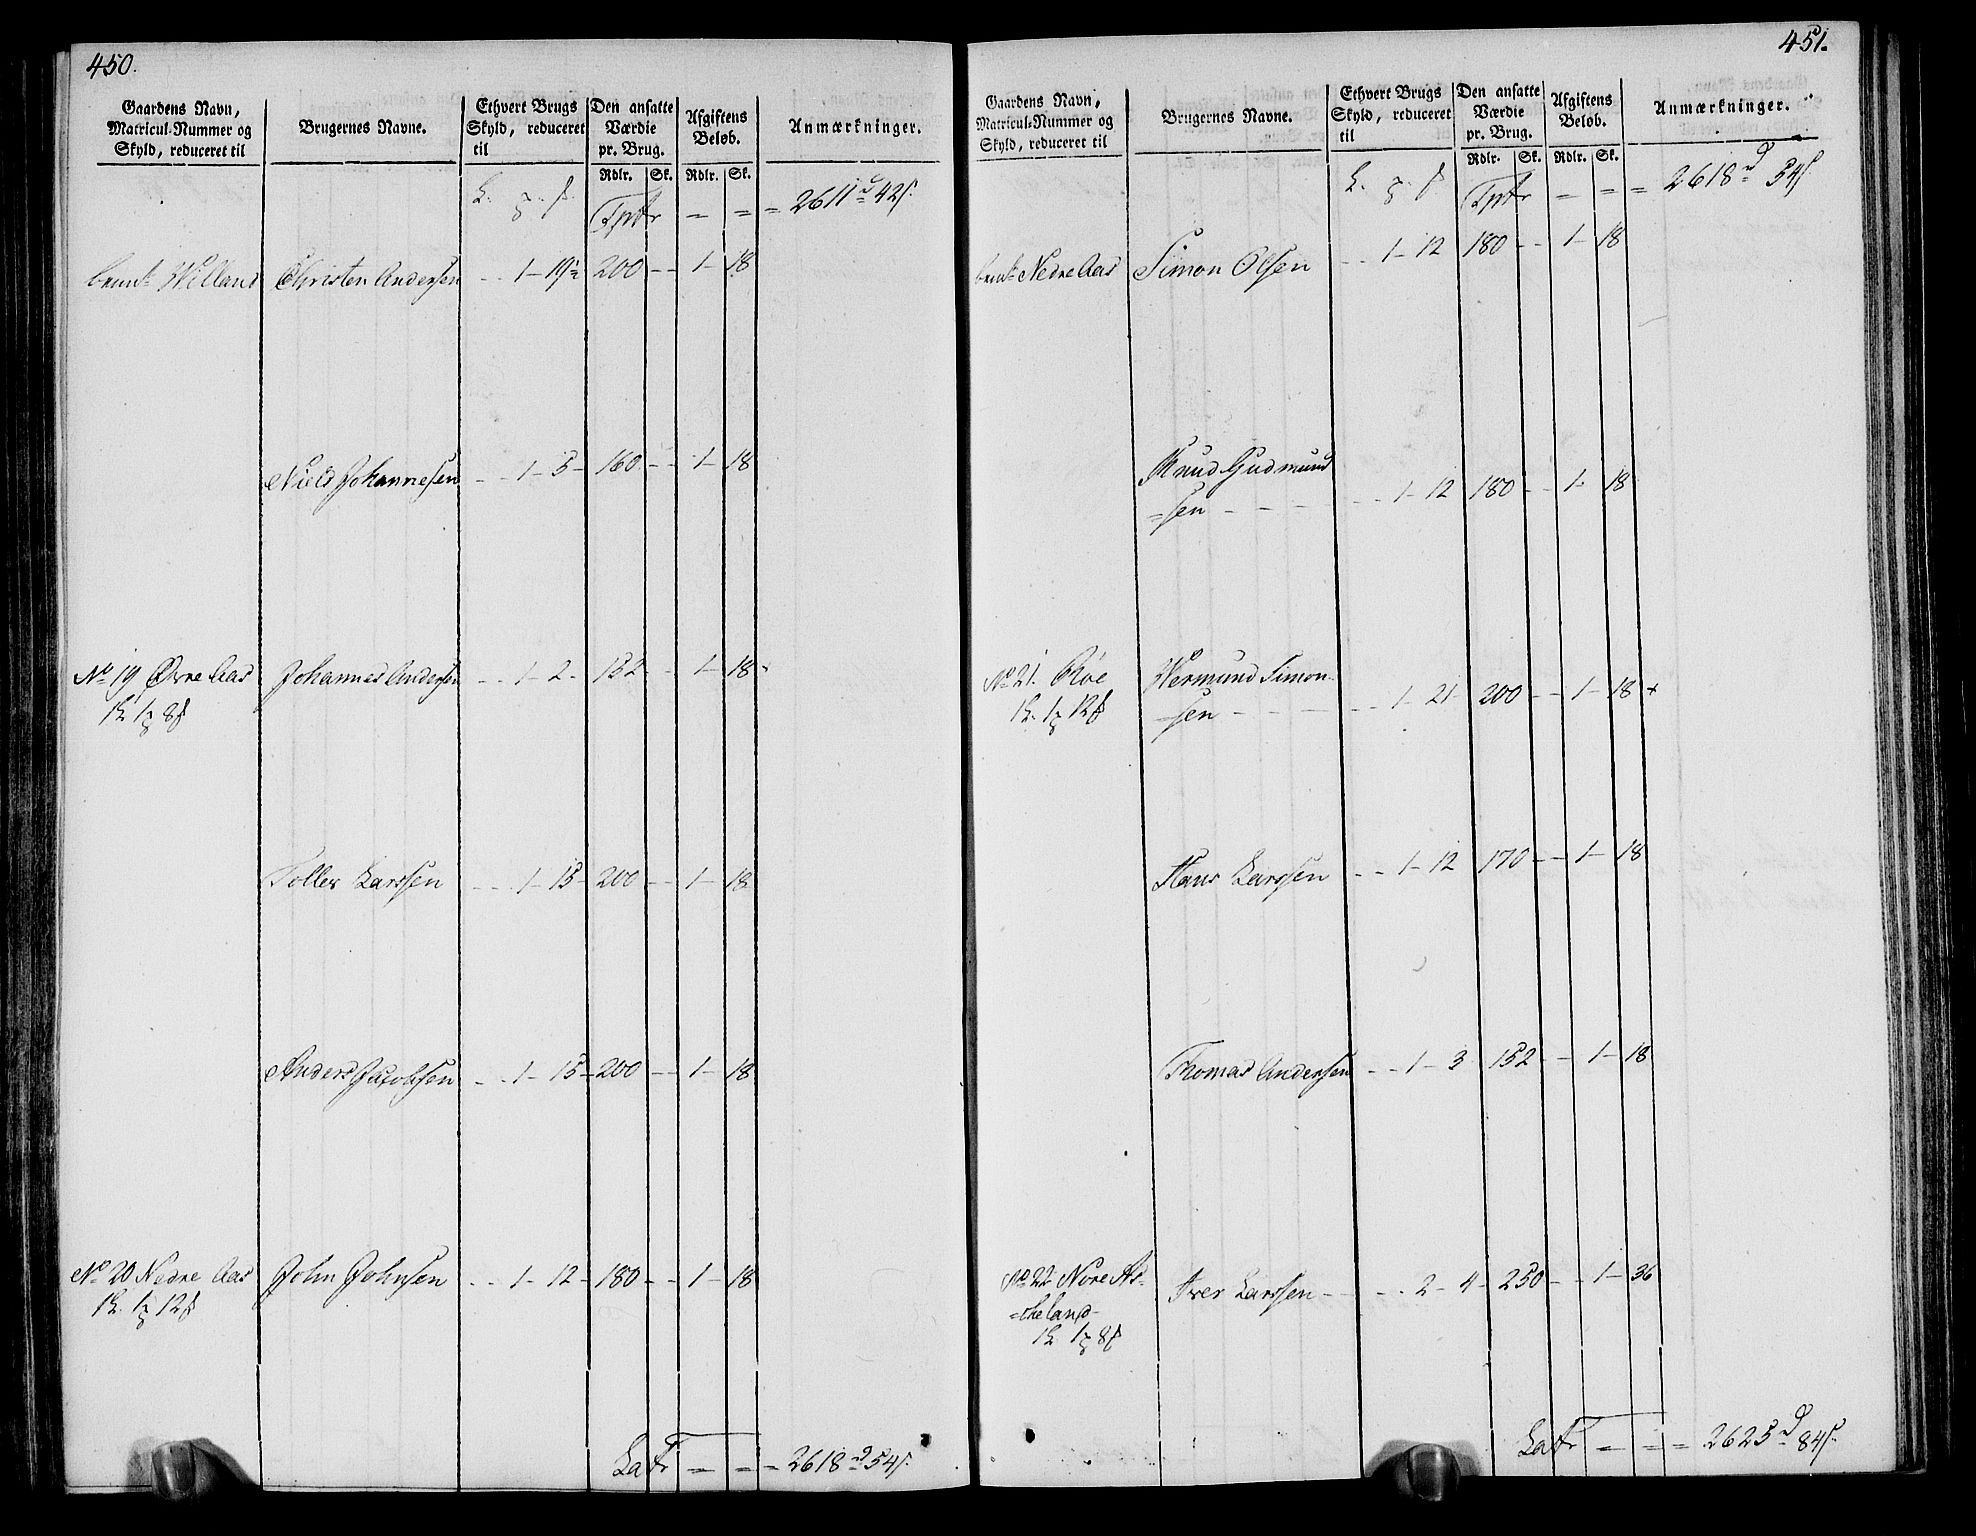 450.
Gaardens Navn,
Matricul-Nummer og
Skyld, reduceret til
Brugernes Navne.
Ethvert Brugs
Skyld, reduceret
til
Den ansatte
Værdie
pr. Brug.
Afgiftens
Beløb.
Anmærkninger.
Rdlr. Sk. Rdlr. Sk.
Tptr = = = 2611 d 42 s.
bemt. Willand Christen Andersen - - 1 - 19½ 200 - - 1 - 18
Niels Johannesen - - 1 - 5 - 160 - - 1 - 18
No 19 Øvre Aas Johannes Andersen - - 1 - 2 - 152 - - 1 - 18
Toller Larssen - - 1 - 15 - 200 - - 1 - 18
Anders Jacobsen - - 1 - 15 - 200 - - 1 - 18
No 20 Nedre Aas John Johnsen - - 1 - 12 - 180 - - 1 - 18
Latr = = = 2618 d 54 s.
451.
Gaardens Navn,
Matricul-Nummer og
Skyld, reduceret til
Brugernes Navne.
Ethvert Brugs
Skyld, reduceret
til
Den ansatte
Værdie
pr. Brug.
Afgiftens
Beløb.
Anmærkninger.
Rdlr. Sk. Rdlr. Sk.
Tptr = = = 2618 d 54 s
bemt. Nedre Aas Simon Olsen - - 1 - 12 180 - - 1 - 18
Knud Gudmund
=sen - - - - - 1 - 12 180 - - 1 - 18
No 21. Røe Wermund Simon-
=sen - - - - - 1 - 21 - 200 - - 1 - 18 +
Hans Larssen - - 1 - 12 170 - - 1 - 18
Thomas Andersen - - 1 - 3 152 - - 1 - 18
No 22 Nore As-
=keland Iver Larssen - - - 2 - 4 - 250 - - 1 - 36
Latr = = = 2625 d 84 s.